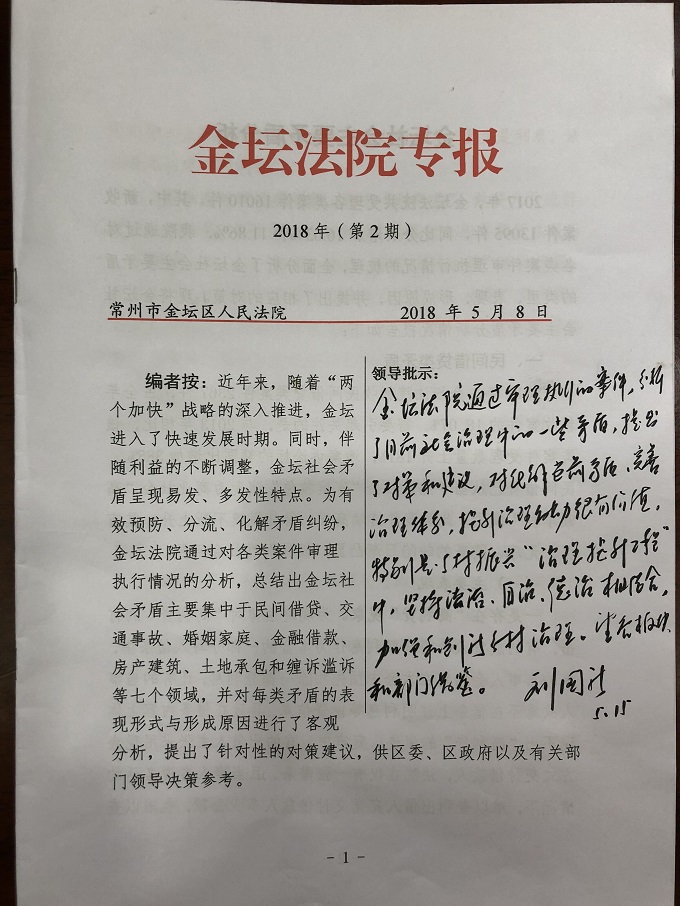 金坛法院专报
2018年（第2期）
常州市金坛区人民法院 2018 年 5 月 8 日
编者按：近年来，随着“两
个加快”战略的深入推进，金坛
进入了快速发展时期。同时，伴
随利益的不断调整，金坛社会矛
盾呈现易发、多发性特点。为有
效预防、分流、化解矛盾纠纷，
金坛法院通过对各类案件审理
执行情况的分析，总结出金坛社
会矛盾主要集中于民间借贷、交
通事故、婚姻家庭、金融借款、
房产建筑、土地承包和缠诉滥诉
等七个领域，并对每类矛盾的表
现形式与形成原因进行了客观
分析，提出了针对性的对策建议，供区委、区政府以及有关部
门领导决策参考。
领导批示：
金坛法院通过审理执行的案件，分析
了目前社会治理中的一些矛盾，提出
了对策和建议，对化解当前矛盾、完善
治理体系，提升治理能力很有价值，
特别是乡村振兴“治理提升工程”
中，坚持法治、自治、德治相结合，
加强和创新乡村治理。望各板块
和部门借鉴。
5.15
- 1 -